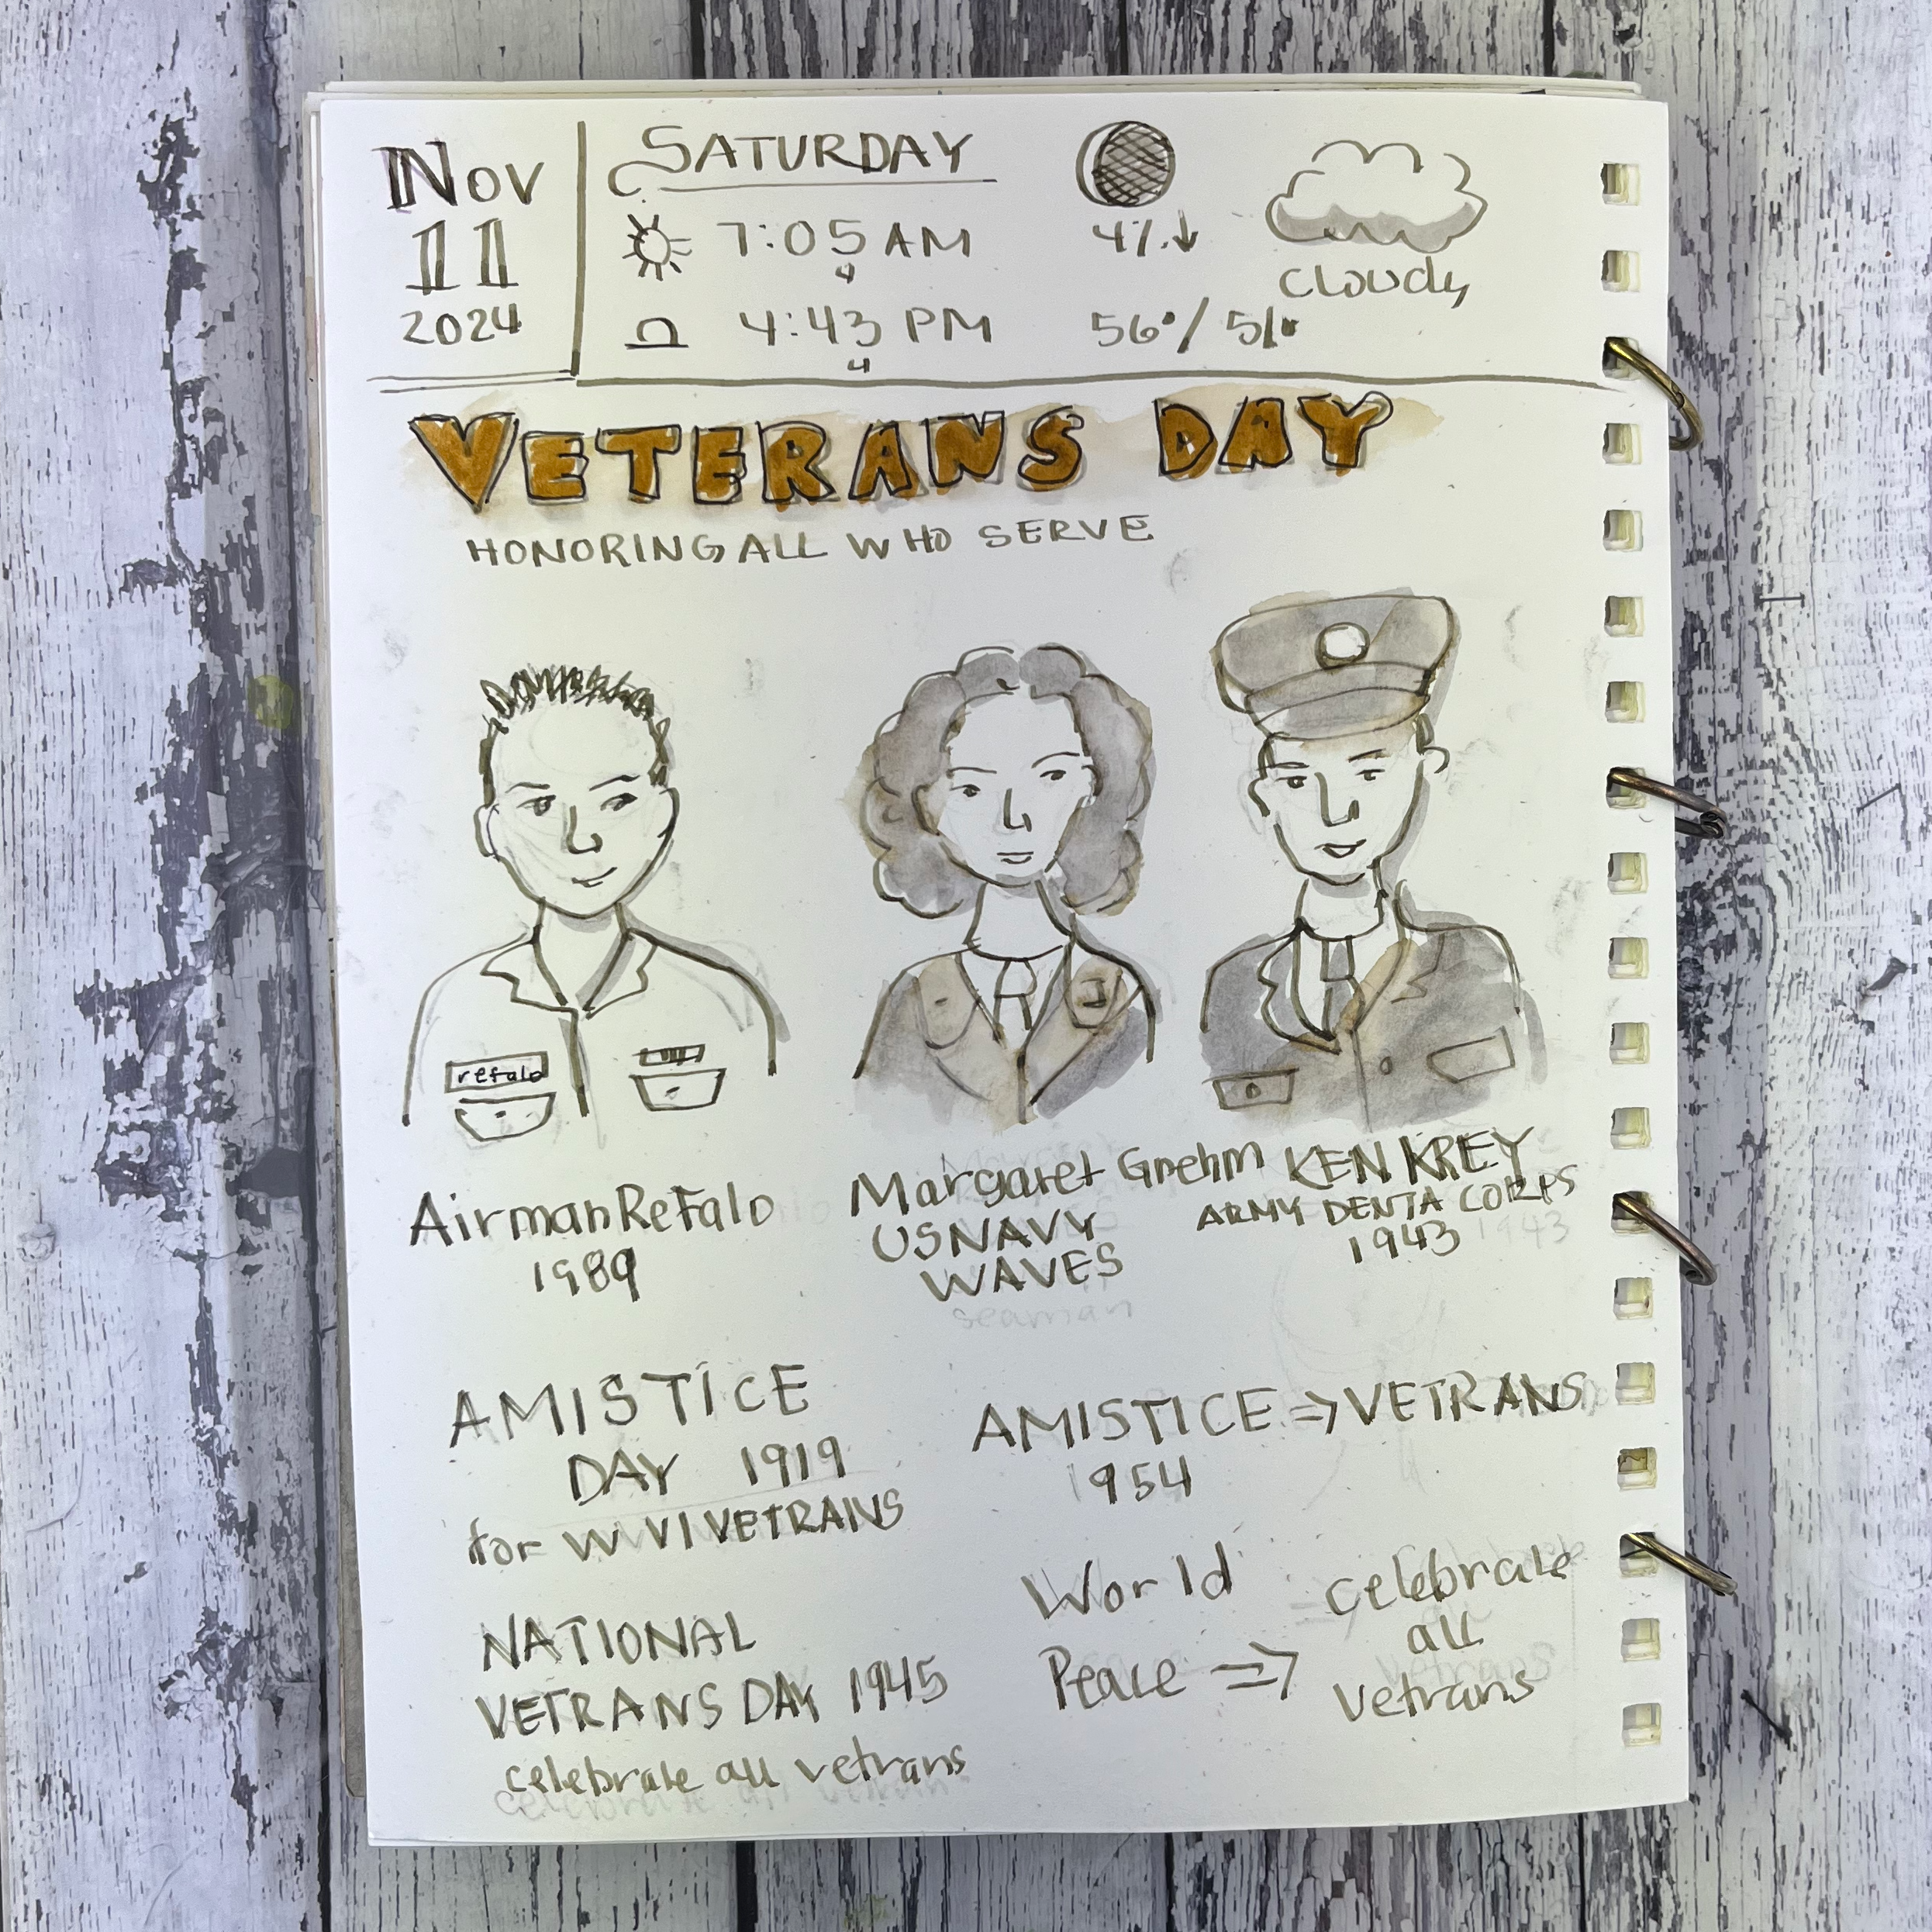 Nov
11
2024
SATURDAY
7:05 AM
4:43 PM
4%↓
56°/51°
cloudy
VETERANS DAY
HONORING ALL WHO SERVE
refalo
Airman ReFalo
1989
Margaret Grehm
US NAVY
WAVES
seaman
KEN KREY
ARMY DENTA CORPS
1943
AMISTICE
DAY 1919
for WWI VETRANS
NATIONAL
VETRANS DAY 1945
celebrate all vetrans
AMISTICE => VETRANS
1954
World
Peace =>
celebrate
all
vetrans